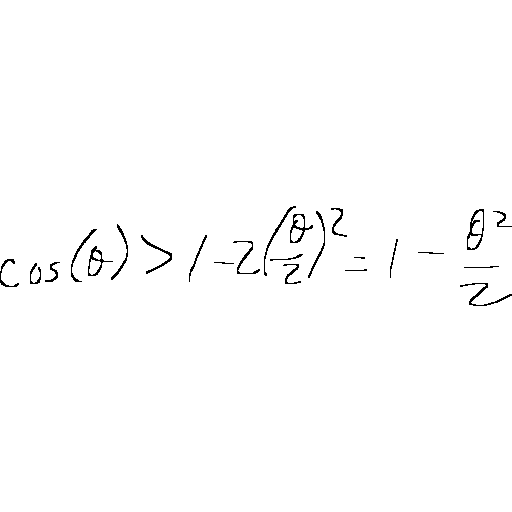 cos(θ) > 1 - 2(θ/2)² = 1 - θ²/2